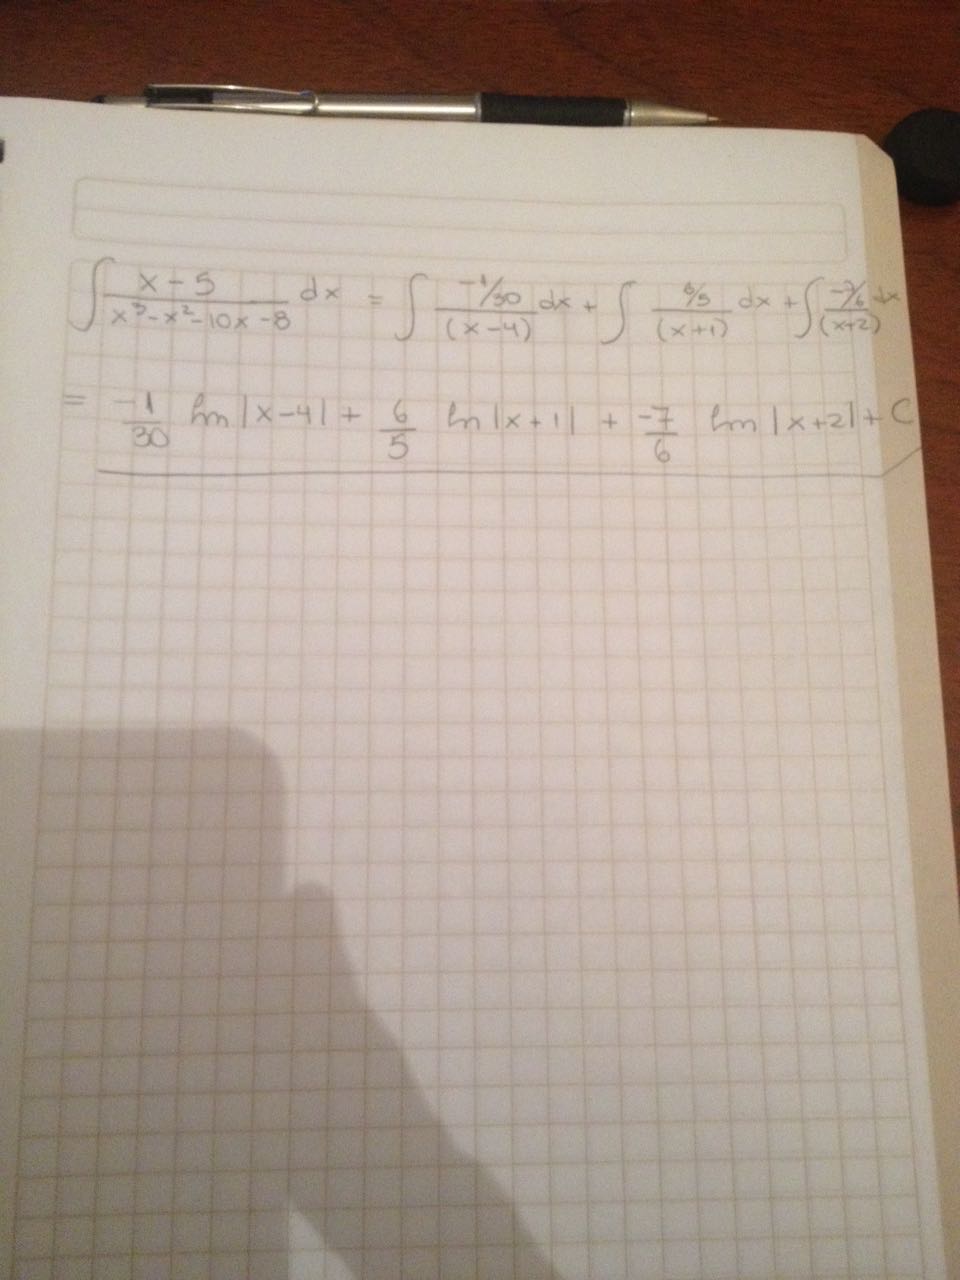 ∫ x-5 / x³-x²-10x-8 dx = ∫ -1/30 / (x-4) dx + ∫ 6/5 / (x+1) dx + ∫ -7/6 / (x+2) dx
= -1/30 ln |x-4| + 6/5 ln |x+1| + -7/6 ln |x+2| + C